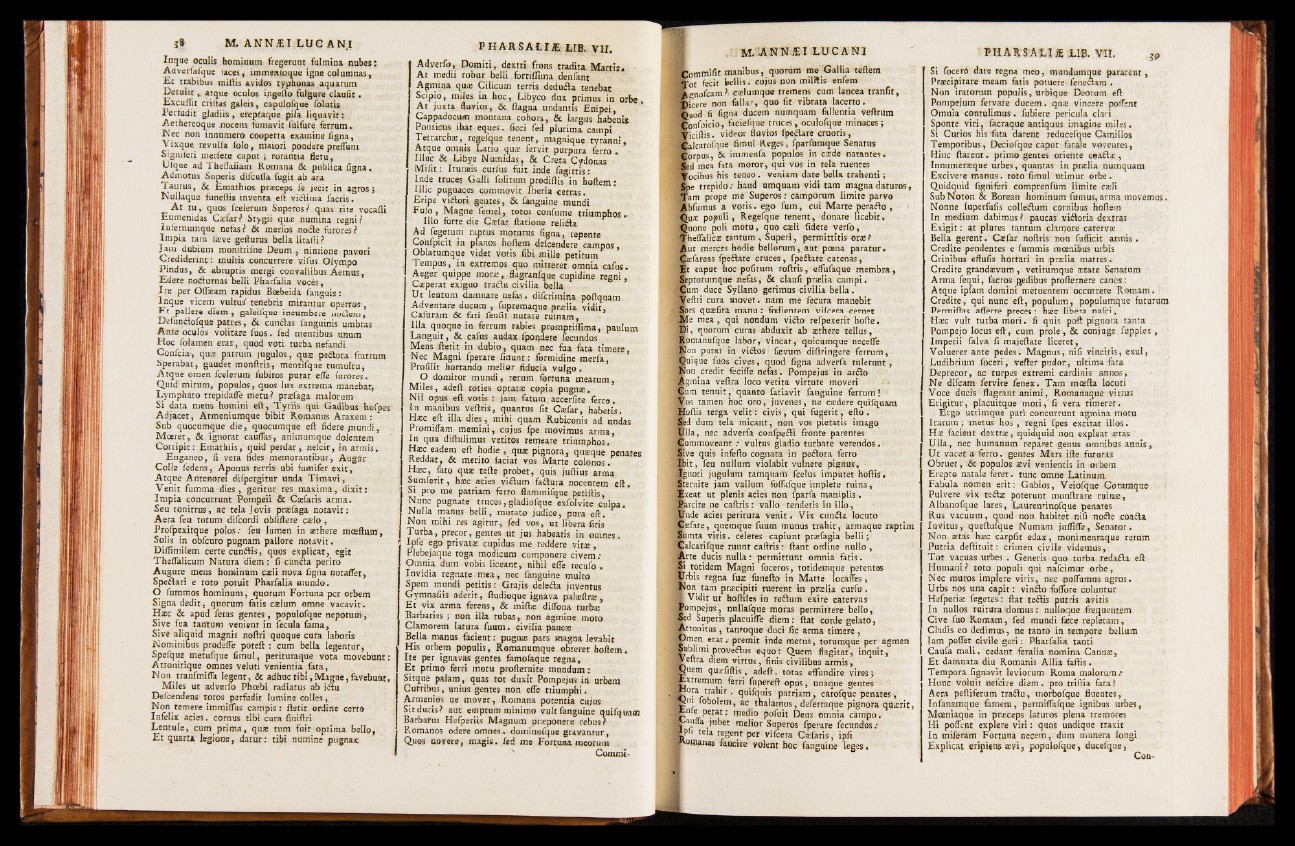 38 M. ANNÆI LUCANI
Inque oculis hominum fregerunt fulmina nubes:
Adversasque faces, immensoque igne columnas,
Et trabibus mistis avidos typhonas aquarum
Detulit, atque oculos ingesto fulgure clausit.
Excussit cristas galeis, capulosque solutis
Perfudit gladiis, ereptaque pila liquavit:
Aethereoque nocens fumavit sulfure ferrum.
Nec non innumero coopetta examine signa,
Vixque revulsa solo, maiori pondere pressum
Signiferi mersere caput; rorantia fletu,
Usque ad Thessaliam Romana & publica signa.
Admotus Superis discussa fugit ab ara
Taurus, & Emathios præceps se jecit in agros;
Nullaque funestis inventa est victima sacris.
At tu, quos scelerum Superos? quas rite vocasti
Eumenidas Cæsar? Stygii quæ numina regni?
Infernumque nefas? & mersos nocte furores?
Impia tam sæve gesturus bella litasti?
Jam dubium monstrisne Deum, nimione pavori
Crediderint: multis concurrere visus Olympo
Pindus, & abruptis mergi convallibus Aemus,
Edere nocturnas belli Pharsalia voces,
Ire per Ossæam rapidus Bœbeida sanguis:
Inque vicem vultus tenebris mirantur opertos,
Et pallere diem, galeisque incumbere noctem,
Defunctosque patres, & cunctas sanguinis umbras
Ante oculos volitare suos. sed mentibus unum
Hoc solamen erat, quod voti turba nefandi
Conscia, quæ patrum jugulos, quæ pectora fratrum
Sperabat, gaudet monstris, mentisque tumultu,
Atque omen scelerum subitos putat esse furores.
Quid mirum, populos, quos lux extrema manebat,
Lymphato trepidasse metu? præsaga malorum
Si data mens homini est, Tyriis qui Gadibus hospes
Adjacet, Armeniumque bibit Romanus Araxem:
Sub quocumque die, quocumque est sidere mundi,
Mœret, & ignorat caussas, animumque dolentem
Corripit: Emathiis, quid perdat, nescit, in armis.
Euganeo, si vera fides memorantibus, Augur
Colle sedens, Aponus terris ubi fumifer exit,
Atque Antenorei dispergitur unda Timavi,
Venit summa dies, geritur res maxima, dixit:
Impia concurrunt Pompeii & Cæsaris arma.
Seu tonitrus, ac tela Jovis præsaga notavit:
Aera seu totum discordi obsistere cælo,
Prospexitque polos: seu lumen in æthere mœstum,
Solis in obscuro pugnam pallore notavit.
Dissimilem certe cunctis, quos explicat, egit
Thessalicum Natura diem: si cuncta perito
Augure mens hominum cæli nova signa notasset,
Spectari e toto potuit Pharsalia mundo.
O summos hominum, quorum Fortuna per orbem
Signa dedit, quorum fatis cælum omne vacavit.
Hæc & apud seras gentes, populosque neporum,
Sive sua tantum venient in secula fama,
Sive aliquid magnis nostri quoque cura laboris
Nominibus prodesse potest: cum bella legentur,
Spesque metusque simul, perituraque vota movebunt:
Attonitique omnes veluti venientia fata,
Non transmissa legent, & adhuc tibi, Magne, favebunt.
Miles ut adverso Phœbi radiatus ab ictu
Descendens totos perfudit lumine colles,
Non temere immissus campis: stetit ordine certo
Infelix acies. cornus tibi cura sinistri
Lentule, cum prima, quæ tum fuit optima bello,
Et quarta legione, datur: tibi numine pugnax
PHARSALIÆ LIB. VII.
Adverso, Domiti, dextri frons tradita Martis.
At medii robur belli fortissima densant
Agmina quæ Cilicum terris deducta tenebat
Scipio, miles in hoc, Libyco dux primus in orbe.
At juxta fluvios, & stagna undantis Enipei,
Cappadocum montana cohors, & largus habenis
Ponticus ibat eques. sicci sed plurima campi
Tetrarchæ, regesque tenent, magnique tyranni,
Atque omnis Latio quæ servit purpura ferro.
Illuc & Libye Numidas, & Creta Cydonas
Misit: Ituræis cursus fuit inde sagittis:
Inde truces Galli solitum prodistis in hostem:
Illic pugnaces commovit Iberia cetras.
Eripe victori gentes, & sanguine mundi
Fuso, Magne semel, totos consume triumphos.
Illo forte die Cæsar statione relicta
Ad segetum raptus moturus signa, repente
Conspicit in planos hostem descendere campos,
Oblatumque videt votis sibi mille petitum
Tempus, in extremos quo mitteret omnia casus.
Aeger quippe moræ, flagransque cupidine regni,
Cæperat exiguo tractu civilia bella
Ut lentum damnare nefas. discrimina postquam
Adventare ducum, supremaque prælia vidit,
Casuram & fati sensit nutare ruinam,
Illa quoque in ferrum rabies promptissima, paulum
Languit, & casus audax spondere secundos
Mens stetit in dubio, quam nec sua fata timere,
Nec Magni sperare sinunt: formidine mersa,
Prosilit hortando melior fiducia vulgo.
O domitor mundi, rerum fortuna mearum,
Miles, adest toties optatæ copia pugnæ,
Nil opus est votis: jam fatum accersite ferro.
In manibus vestris, quantus sit Cæsar, habetis.
Hæc est illa dies, mihi quam Rubiconis ad undas
Promissam memini, cujus spe movimus arma,
In qua distulimus vetitos remeare triumphos.
Hæc eadem est hodie, quæ pignora, quæque penates
Reddat, & merito faciat vos Marte colonos.
Hæc, fato quæ teste probet, quis justius arma
Sumserit, hæc acies victum factura nocentem est.
Si pro me patriam ferro flammisque petistis,
Nunc pugnate truces, gladiosque exsolvite culpa.
Nulla manus belli, mutato judice, pura est.
Non mihi res agitur, sed vos, ut libera sitis
Turba, precor, gentes ut jus habeatis in omnes.
Ipse ego privatæ cupidus me reddere vitæ,
Plebejaque toga modicum componere civem:
Omnia dum vobis liceant, nihil esse recuso.
Invidia regnate mea, nec sanguine multo
Spem mundi petitis: Grajis delecta juventus
Gymnasiis aderit, studioque ignava palæstræ,
Et vix arma ferens, & mistæ dissona turbæ
Barbaries; non illa tubas, non agmine moto
Clamorem latura suum. civilia paucæ
Bella manus facient: pugnæ pars magna levabit
His orbem populis, Romanumque obteret hostem.
Ite per ignavas gentes famosaque regna,
Et primo ferri motu prosternite mundum:
Sitque palam, quas tot duxit Pompejus in urbem
Curribus, unius gentes non esse triumphi.
Armenios ne movet, Romana potentia cujus
Sit ducis? aut emptum minimo vult sanguine quisquam
Barbarus Hesperiis Magnum præponere rebus?
Romanos odere omnes. dominosque gravantur,
Quos novere, magis. sed me Fortuna meorum
Commi-
M. ANNÆI LUCANI
Commisit manibus, quorum me Gallia testem
Tot fecit bellis. cujus non militis ensem
Agnoscam? cælumque tremens cum lancea transit,
Dicere non fallar, quo sit vibrata lacerto.
Quod si signa ducem numquam fallentia vestrum
Conspicio, faciesque truces, oculosque minaces;
Vicistis. videor fluvios spectare cruoris,
Calcatosque simul Reges, sparsumque Senatus
Corpus, & immensa populos in cæde natantes.
Sed mea fata moror, qui vos in tela ruentes
Vocibus his teneo. veniam date bella trahenti;
Spe trepido: haud umquam vidi tam magna daturos,
Tam prope me Superos: camporum limite parvo
Absumus a votis. ego sum, cui Marte peracto,
Quæ populi, Regesque tenent, donare licebit.
Quone poli motu, quo cæli sidere verso,
Thessalicæ tantum, Superi, permittitis oræ?
Aut merces hodie bellorum, aut pœna paratur.
Cæsareas spectate cruces, spectate catenas,
Et caput hoc positum rostris, effusaque membra,
Septorumque nefas, & clausi prælia campi.
Cum duce Syllano gerimus civilia bella.
Vestri cura movet. nam me secura manebit
Sors quæsita manu: fodientem viscera cernet
Me mea, qui nondum victo respexerit hoste.
Di, quorum curas abduxit ab æthere tellus,
Romanusque labor, vincat, quicumque necesse
Non putat in victos sævum distringere ferrum,
Quique suos cives, quod signa adversa tulerunt,
Non credit fecisse nefas. Pompejus in arcto
Agmina vestra loco vetita virtute moveri
Cum tenuit, quanto satiavit sanguine ferrum!
Vos tamen hoc oro, juvenes, ne cædere quisquam
Hostis terga velit: civis, qui fugerit, esto.
Sed dum tela micant, non vos pietatis imago
Ulla, nec adversa conspecti fronte parentes
Commoveant: vultus gladio turbate verendos.
Sive quis infesto cognata in pectora ferro
Ibit, seu nullum violabit vulnere pignus,
Ignoti jugulum tamquam scelus imputet hostis.
Sternite jam vallum fossasque implete ruina,
Exeat ut plenis acies non sparsa maniplis.
Parcite ne castris: vallo tendetis in illo,
Unde acies peritura venit. Vix cuncta locuto
Cæsare, quemque suum munus trahit, armaque raptim
Sumta viris. celeres capiunt præsagia belli;
Calcatisque ruunt castris: stant ordine nullo,
Arte ducis nulla: permittunt omnia fatis.
Si totidem Magni soceros, totidemque petentes
Urbis regna suæ funesto in Marte locasses,
Non tam præcipiti ruerent in prælia cursu.
Vidit ut hostiles in rectum exire catervas
Pompejus, nullasque moras permittere bello,
Sed Superis placuisse diem: stat corde gelato,
Attonitus, tantoque duci sic arma timere,
Omen erat. premit inde metus, totumque per agmen
Sublimi provectus equo: Quem flagitat, inquit,
Vestra diem virtus, finis civilibus armis,
Quem quæsistis, adest. totas effundite vires;
Extremum ferri superest opus, unaque gentes
Hora trahit. quisquis patriam, carosque penates,
Qui sobolem, ac thalamos, desertaque pignora quærit,
Ense petat: medio posuit Deus omnia campo.
Caussa jubet melior Superos sperare secundos:
Ipsi tela regent per viscera Cæsaris, ipsi
Romanas sancire volent hoc sanguine leges.
PHARSALIÆ LIB. VII. 39
Si socero dare regna meo, mundumque pararent,
Præcipitare meam fatis potuere senectam.
Non iratorum populis, urbique Deorum est
Pompejum servare ducem. quæ vincere possent
Omnia contulimus. subiere pericula clari
Sponte viri, sacraque antiquus imagine miles.
Si Curios his fata darent reducesque Camillos
Temporibus, Deciosque caput fatale voventes,
Hinc starent. primo gentes oriente coactæ,
Innumeræque urbes, quantas in prælia numquam
Excivere manus. toto simul utimur orbe.
Quidquid signiferi comprensum limite cæli
Sub Noton & Borean hominum sumus, arma movemus.
Nonne superfusis collectum cornibus hostem
In medium dabimus? paucas victoria dextras
Exigit: at plures tantum clamore catervæ
Bella gerent. Cæsar nostris non sufficit armis.
Credite pendentes e summis mœnibus urbis
Crinibus effusis hortari in prælia matres.
Credite grandævum, vetitumque ætate Senatum
Arma sequi, sacros pedibus prosternere canos:
Atque ipsam domini metuentem occurrere Romam.
Credite, qui nunc est, populum, populumque futurum
Permistas afferre preces: hæc libera nasci,
Hæc vult turba mori. si quis post pignora tanta
Pompejo locus est, cum prole, & conjuge supplex,
Imperii salva si majestate liceret,
Volverer ante pedes. Magnus, nisi vincitis, exul,
Ludibrium soceri, vester pudor, ultima fata
Deprecor, ac turpes extremi cardinis annos,
Ne discam servire senex. Tam mœsta locuti
Voce ducis flagrant animi, Romanaque virtus
Erigitur, placuitque mori, si vera timeret.
Ergo utrimque pari concurrunt agmina motu
Irarum; metus hos, regni spes excitat illos.
Hæ facient dextræ, quidquid non expleat ætas
Ulla, nec humanum reparet genus omnibus annis,
Ut vacet a ferro. gentes Mars iste futuras
Obruet, & populos ævi venientis in orbem
Erepto natale feret. tunc omne Latinum
Fabula nomen erit: Gabios, Veiosque Coramque
Pulvere vix tectæ poterunt monstrare ruinæ,
Albanosque lares, Laurentinosque penates
Rus vacuum, quod non habitet nisi nocte coacta
Invitus, questusque Numam jussisse, Senator.
Non ætas hæc carpsit edax, monimentaque rerum
Putria destituit: crimen civile videmus,
Tot vacuas urbes. Generis quo turba redacta est
Humani? toto populi qui nascimur orbe,
Nec muros implere viris, nec possumus agros.
Urbs nos una capit: vincto fossore coluntur
Hesperiæ segetes: stat tectis putris avitis
In nullos ruitura domus: nulloque frequentem
Cive suo Romam, sed mundi fæce repletam,
Cladis eo dedimus, ne tanto in tempore bellum
Jam posset civile geri: Pharsalia tanti
Causa mali. cedant feralia nomina Cannæ,
Et damnata diu Romanis Allia fastis.
Tempora signavit leviorum Roma malorum:
Hunc voluit nescire diem. pro tristia fata!
Aera pestiferum tractu, morbosque fluentes,
Infanamque famem, permissasque ignibus urbes,
Mœniaque in præceps laturos plena tremores
Hi possent explere viri: quos undique traxit
In miseram Fortuna necem, dum munera longi
Explicat eripiens ævi, populosque, ducesque,
Con-